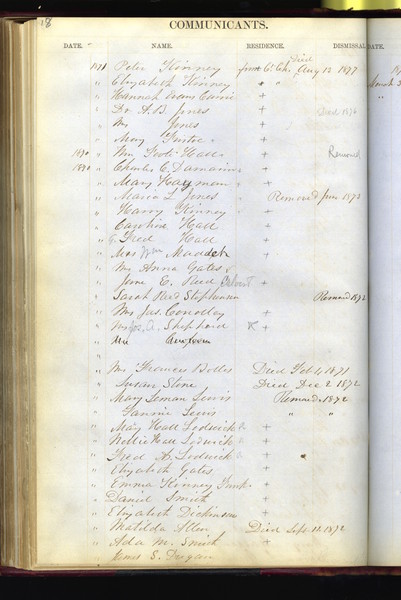 18
COMMUNICANTS.
DATE. NAME. RESIDENCE. DISMISSAL DATE.
1871 Peter Kinney from C. Ch. Died Aug 12 1877
" Elizabeth Kinney " "
" Hannah Evans +
" Dr A. B. Jones + Died 1876
" Mrs Jones +
" May +
1870 " Mrs Hall + Removed
1870 " Charles C. +
" Mary Hayman +
" Maria L. Jones Removed June 1873
" Harry Kinney +
" Caroline Hall +
" E. Fred Hall +
" Mrs Wm Maddock +
" Mrs Anna Gates
" Jane E. Reed +
" Sarah Reed Stephenson Removed 1872
" Mrs Jas. Conolley +
" Mrs Jos. A. Shepherd +
" Mrs
" Mrs Frances Bolles Died Feb 4, 1871
" Susan Slone Died Dec 2 1872
" Mary Leman Lewis Removed. 1872
" Fannie Lewis " "
" May Hall Lodwick +
" Nellie Hall Lodwick +
" Fred A. Lodwick +
" Elizabeth Gates +
" Emma Kinney +
" Daniel Smith +
" Elizabeth Dickinson +
" Matilda Allen Died Sept. 11. 1872
" Ada M. Smith +
" James S. Dugan